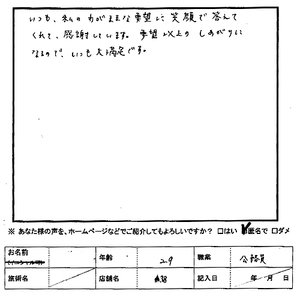 いつも、私のわがままな要望に笑顔で答えて
くれて、感謝しています。要望以上のしあがりに
なるので、いつも大満足です。
※ あなた様の声を、ホームページなどでご紹介してもよろしいですか？ □はい ☑匿名で □ダメ
お名前 年齢 29 職業 公務員
施術名 店舗名 記入日 年 月 日